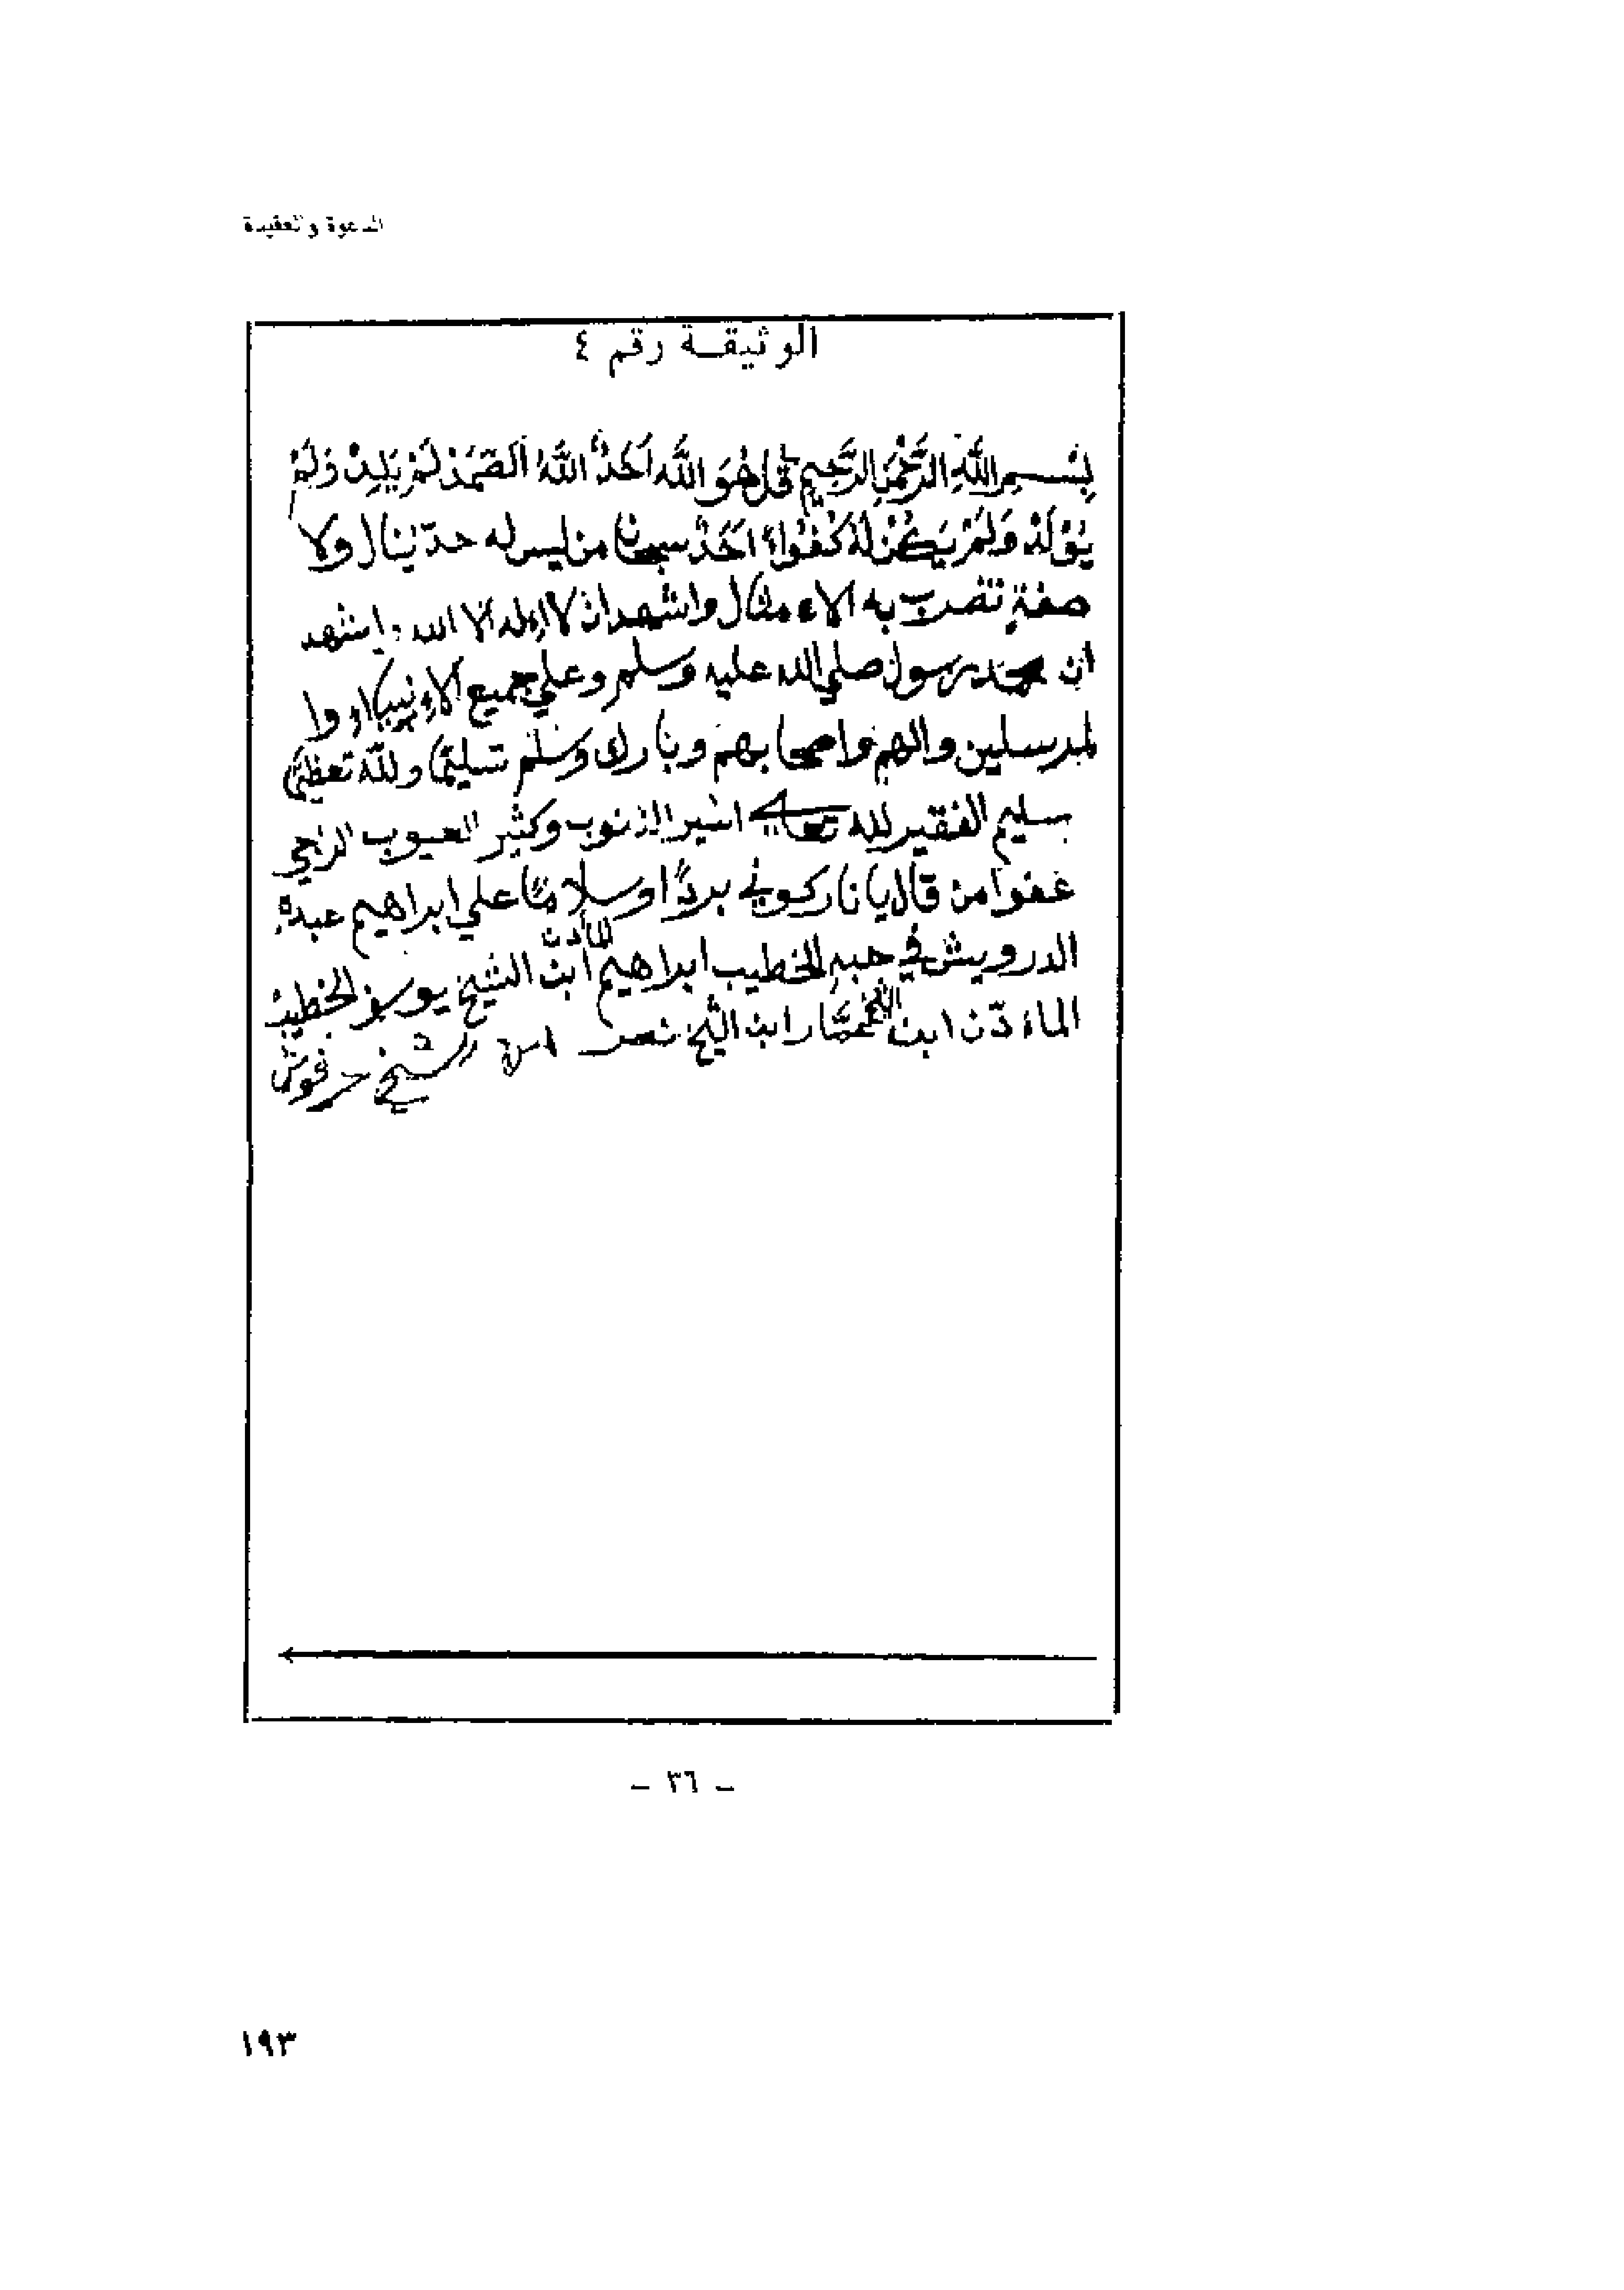 الدعوة والعقيدة
الوثيقة رقم ٤
بِسْمِ اللَّهِ الرَّحْمَنِ الرَّحِيمِ قُلْ هُوَ اللَّهُ اَحَدٌ اللَّهُ الصَّمَدْ لَمْ يَلِدْ وَلَمْ
يُوْلَدْ وَلَمْ يَكُنْ لَهُ كُفُواً اَحَدْ سبحان من ليس له حدّ ينال ولا
صفةٍ تضرب به الاءمثال واشهد ان لا اءله الا الله واشهد
ان محمد رسول صلي الله عليه وسلم وعلي جميع الاءنبياء وا
لمرسلين والهم واصحابهم وبارك وسلم تسليمًا ولله تعظيمًا
سليم الفقير لله تعالى اسير الذنوب وكثير العيوب الراجي
عفوا من قال يا نار كوني بردًا وسلامًا علي ابراهيم عبده
الدرويش في حبه الخطيب ابراهيم ابن الشيخ يوسف الخطيب
الماءذن ابن المختار ابن الشيخ نصر
الشيخ حرفوش
- ٣٦ -
١٩٣